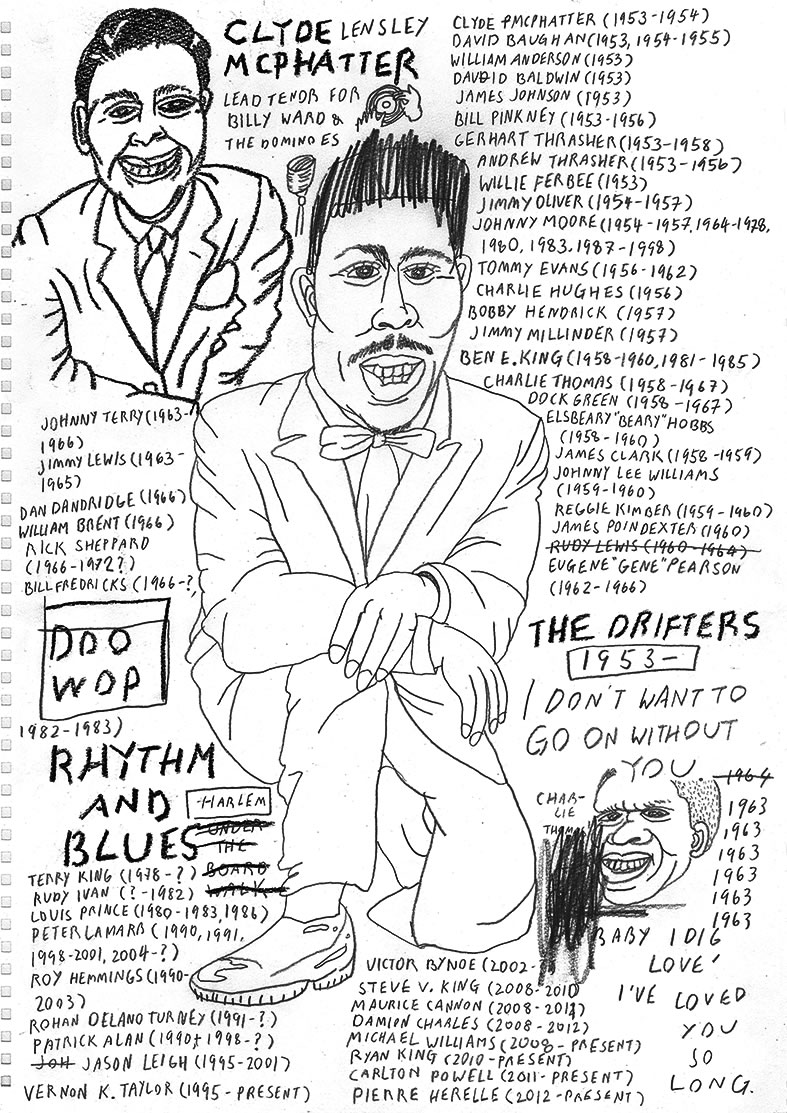 CLYDE LENSLEY
MCPHATTER
LEAD TENOR FOR
BILLY WARD &
THE DOMINOES
CLYDE PMCPHATTER (1953-1954)
DAVID BAUGHAN (1953, 1954-1955)
WILLIAM ANDERSON (1953)
DAVID BALDWIN (1953)
JAMES JOHNSON (1953)
BILL PINKNEY (1953-1956)
GERHART THRASHER (1953-1958)
ANDREW THRASHER (1953-1956)
WILLIE FERBEE (1953)
JIMMY OLIVER (1954-1957)
JOHNNY MOORE (1954-1957, 1964-1978,
1980, 1983, 1987-1998)
TOMMY EVANS (1956-1962)
CHARLIE HUGHES (1956)
BOBBY HENDRICK (1957)
JIMMY MILLINDER (1957)
BEN E. KING (1958-1960, 1981-1985)
CHARLIE THOMAS (1958-1967)
DOCK GREEN (1958-1967)
ELSBEARY "BEARY" HOBBS
(1958-1960)
JAMES CLARK (1958-1959)
JOHNNY LEE WILLIAMS
(1959-1960)
REGGIE KIMBER (1959-1960)
JAMES POINDEXTER (1960)
RUDY LEWIS (1960-1964)
EUGENE "GENE" PEARSON
(1962-1966)
JOHNNY TERRY (1963-
1966)
JIMMY LEWIS (1963-
1965)
DAN DANDRIDGE (1966)
WILLIAM BRENT (1966)
RICK SHEPPARD
(1966-1972?)
BILL FREDRICKS (1966-?,
DOO
WOP
1982-1983)
RHYTHM
AND
BLUES
HARLEM
UNDER
THE
BOARD
WALK
THE DRIFTERS
1953-
I DON'T WANT TO
GO ON WITHOUT
YOU
1964
CHAR-
LIE
THOMAS
1963
1963
1963
1963
1963
1963
BABY I DIG
LOVE'
I'VE LOVED
YOU
SO
LONG.
TERRY KING (1978-?)
RUDY IVAN (?-1982)
LOUIS PRINCE (1980-1983, 1986)
PETER LAMARR (1990, 1991,
1998-2001, 2004-?)
ROY HEMMINGS (1990-
2003)
ROHAN DELANO TURNEY (1991-?)
PATRICK ALAN (1990, 1998-?)
JOH JASON LEIGH (1995-2001)
VERNON K. TAYLOR (1995-PRESENT)
VICTOR BYNOE (2002-
STEVE V. KING (2008-2010
MAURICE CANNON (2008-2011)
DAMION CHARLES (2008-2012)
MICHAEL WILLIAMS (2008-PRESENT)
RYAN KING (2010-PRESENT)
CARLTON POWELL (2011-PRESENT)
PIERRE HERELLE (2012-PRESENT)